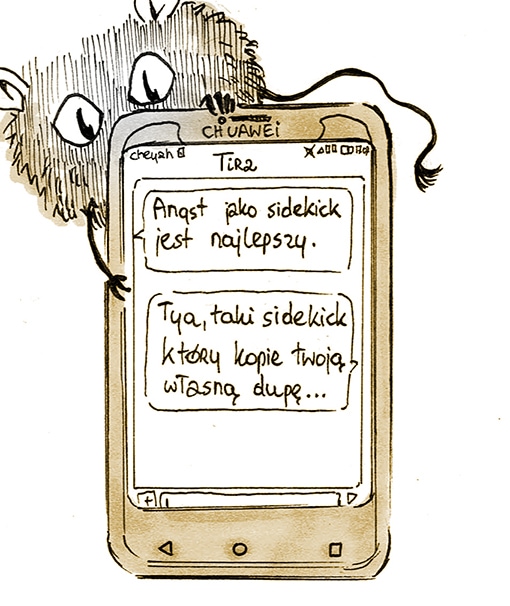 CHUAWEi
cheyzh
Tirz
Angst jako sidekick
jest najlepszy.
Tya, taki sidekick
który kopie twoją
własną dupę...